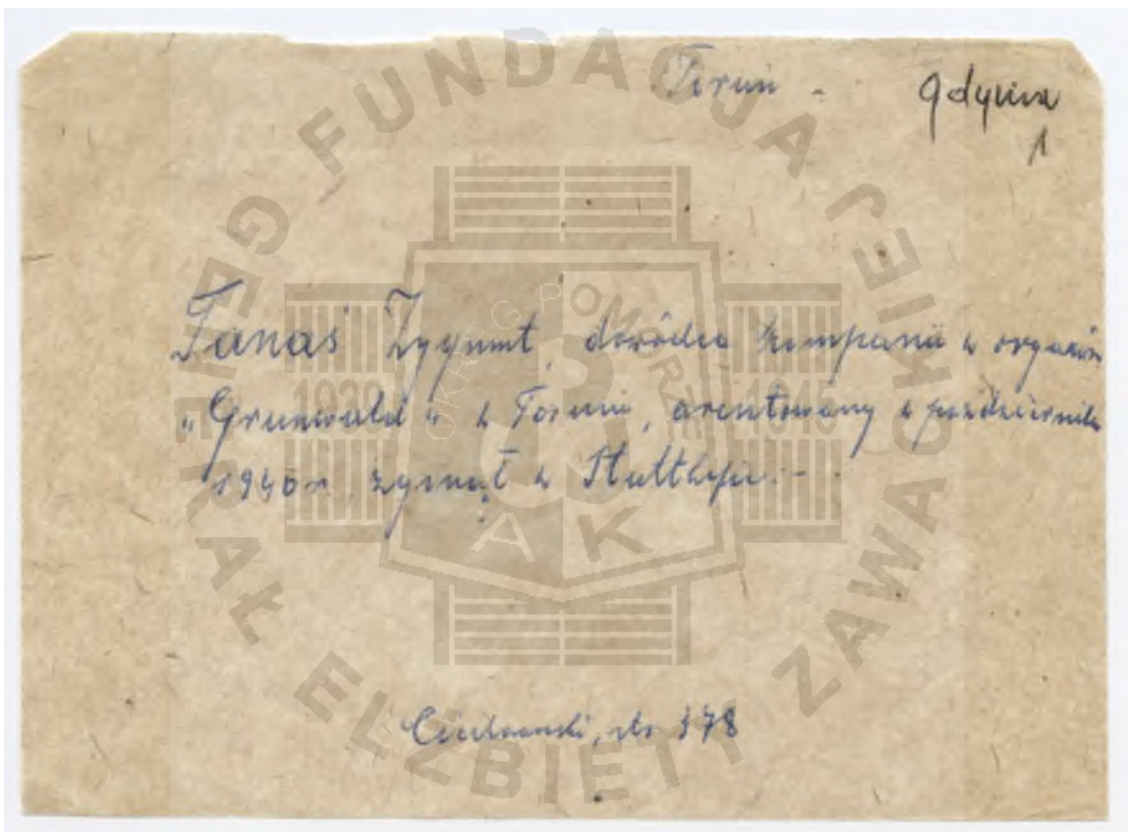 Toruń - Gdynia
1
Tanaś Zygmunt, dowódca kompanii w organiz.
"Grunwald" w Toruniu, aresztowany w październiku
1940 r. zginął w Stutthofie.-
Ciechanowski, str. 378
FUNDACJA GENERAŁ ELŻBIETY ZAWACKIEJ
OKRĘG POMORZE
1939 1945
AK